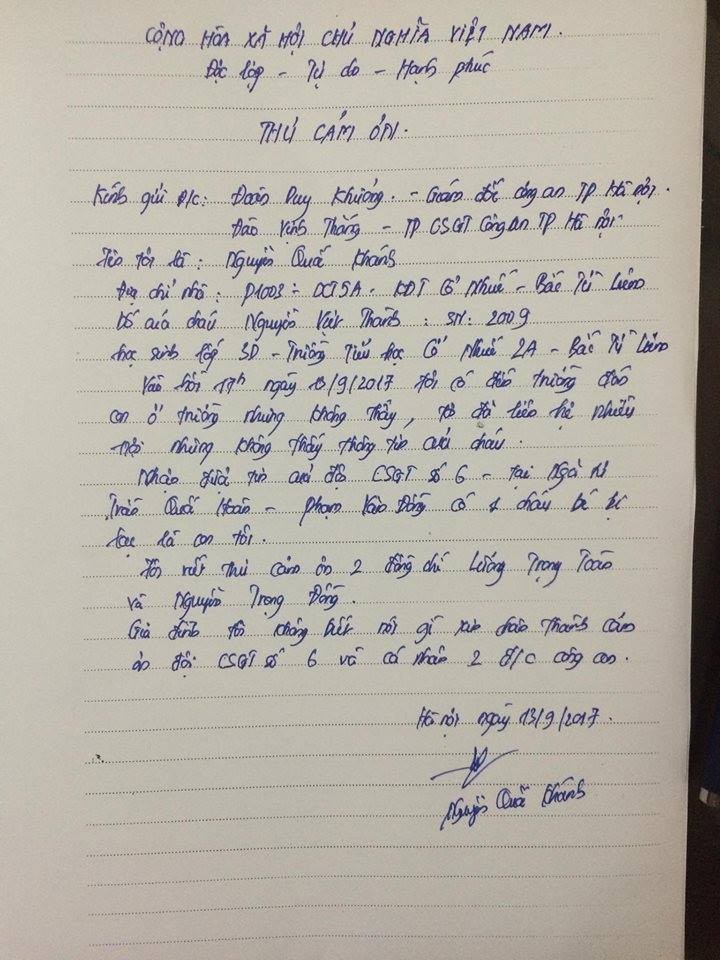 CỘNG HÒA XÃ HỘI CHỦ NGHĨA VIỆT NAM.
Độc lập - Tự do - Hạnh phúc
THƯ CẢM ƠN.
Kính gửi Đ/c: Đoàn Duy Khương. - Giám đốc công an TP Hà Nội.
Đào Vịnh Thắng - TP CSGT Công An TP Hà Nội
Tên tôi là: Nguyễn Quốc Khánh
Địa chỉ nhà: P1003 - DCT5A - KĐT Cổ Nhuế - Bắc Từ Liêm
bố của cháu Nguyễn Việt Thành: SN: 2009
học sinh lớp 3D - Trường Tiểu học Cổ Nhuế 2A - Bắc Từ Liêm
Vào hồi 17h ngày 13/9/2017 tôi có đến trường đón
con ở trường nhưng không thấy, tôi đã liên hệ nhiều
nơi nhưng không thấy thông tin của cháu.
Nhận được tin của đội CSGT số 6 - tại Ngã tư
Trần Quốc Hoàn - Phạm Văn Đồng có 1 cháu bé bị
lạc là con tôi.
Tôi viết thư cảm ơn 2 đồng chí Lương Trọng Toàn
và Nguyễn Trọng Đông.
Gia đình tôi không biết nói gì xin chân thành cảm
ơn đội CSGT số 6 và cá nhân 2 đ/c công an.
Hà nội ngày 13/9/2017.
Nguyễn Quốc Khánh